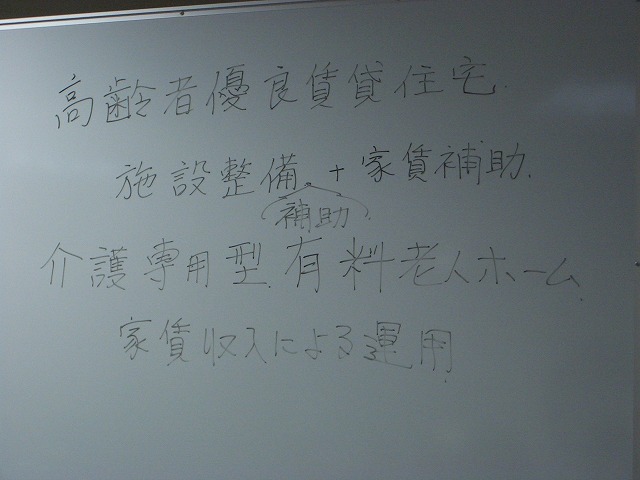 高齢者優良賃貸住宅.
施設整備 + 家賃補助.
(補助)
介護専用型 有料老人ホーム
家賃収入による運用